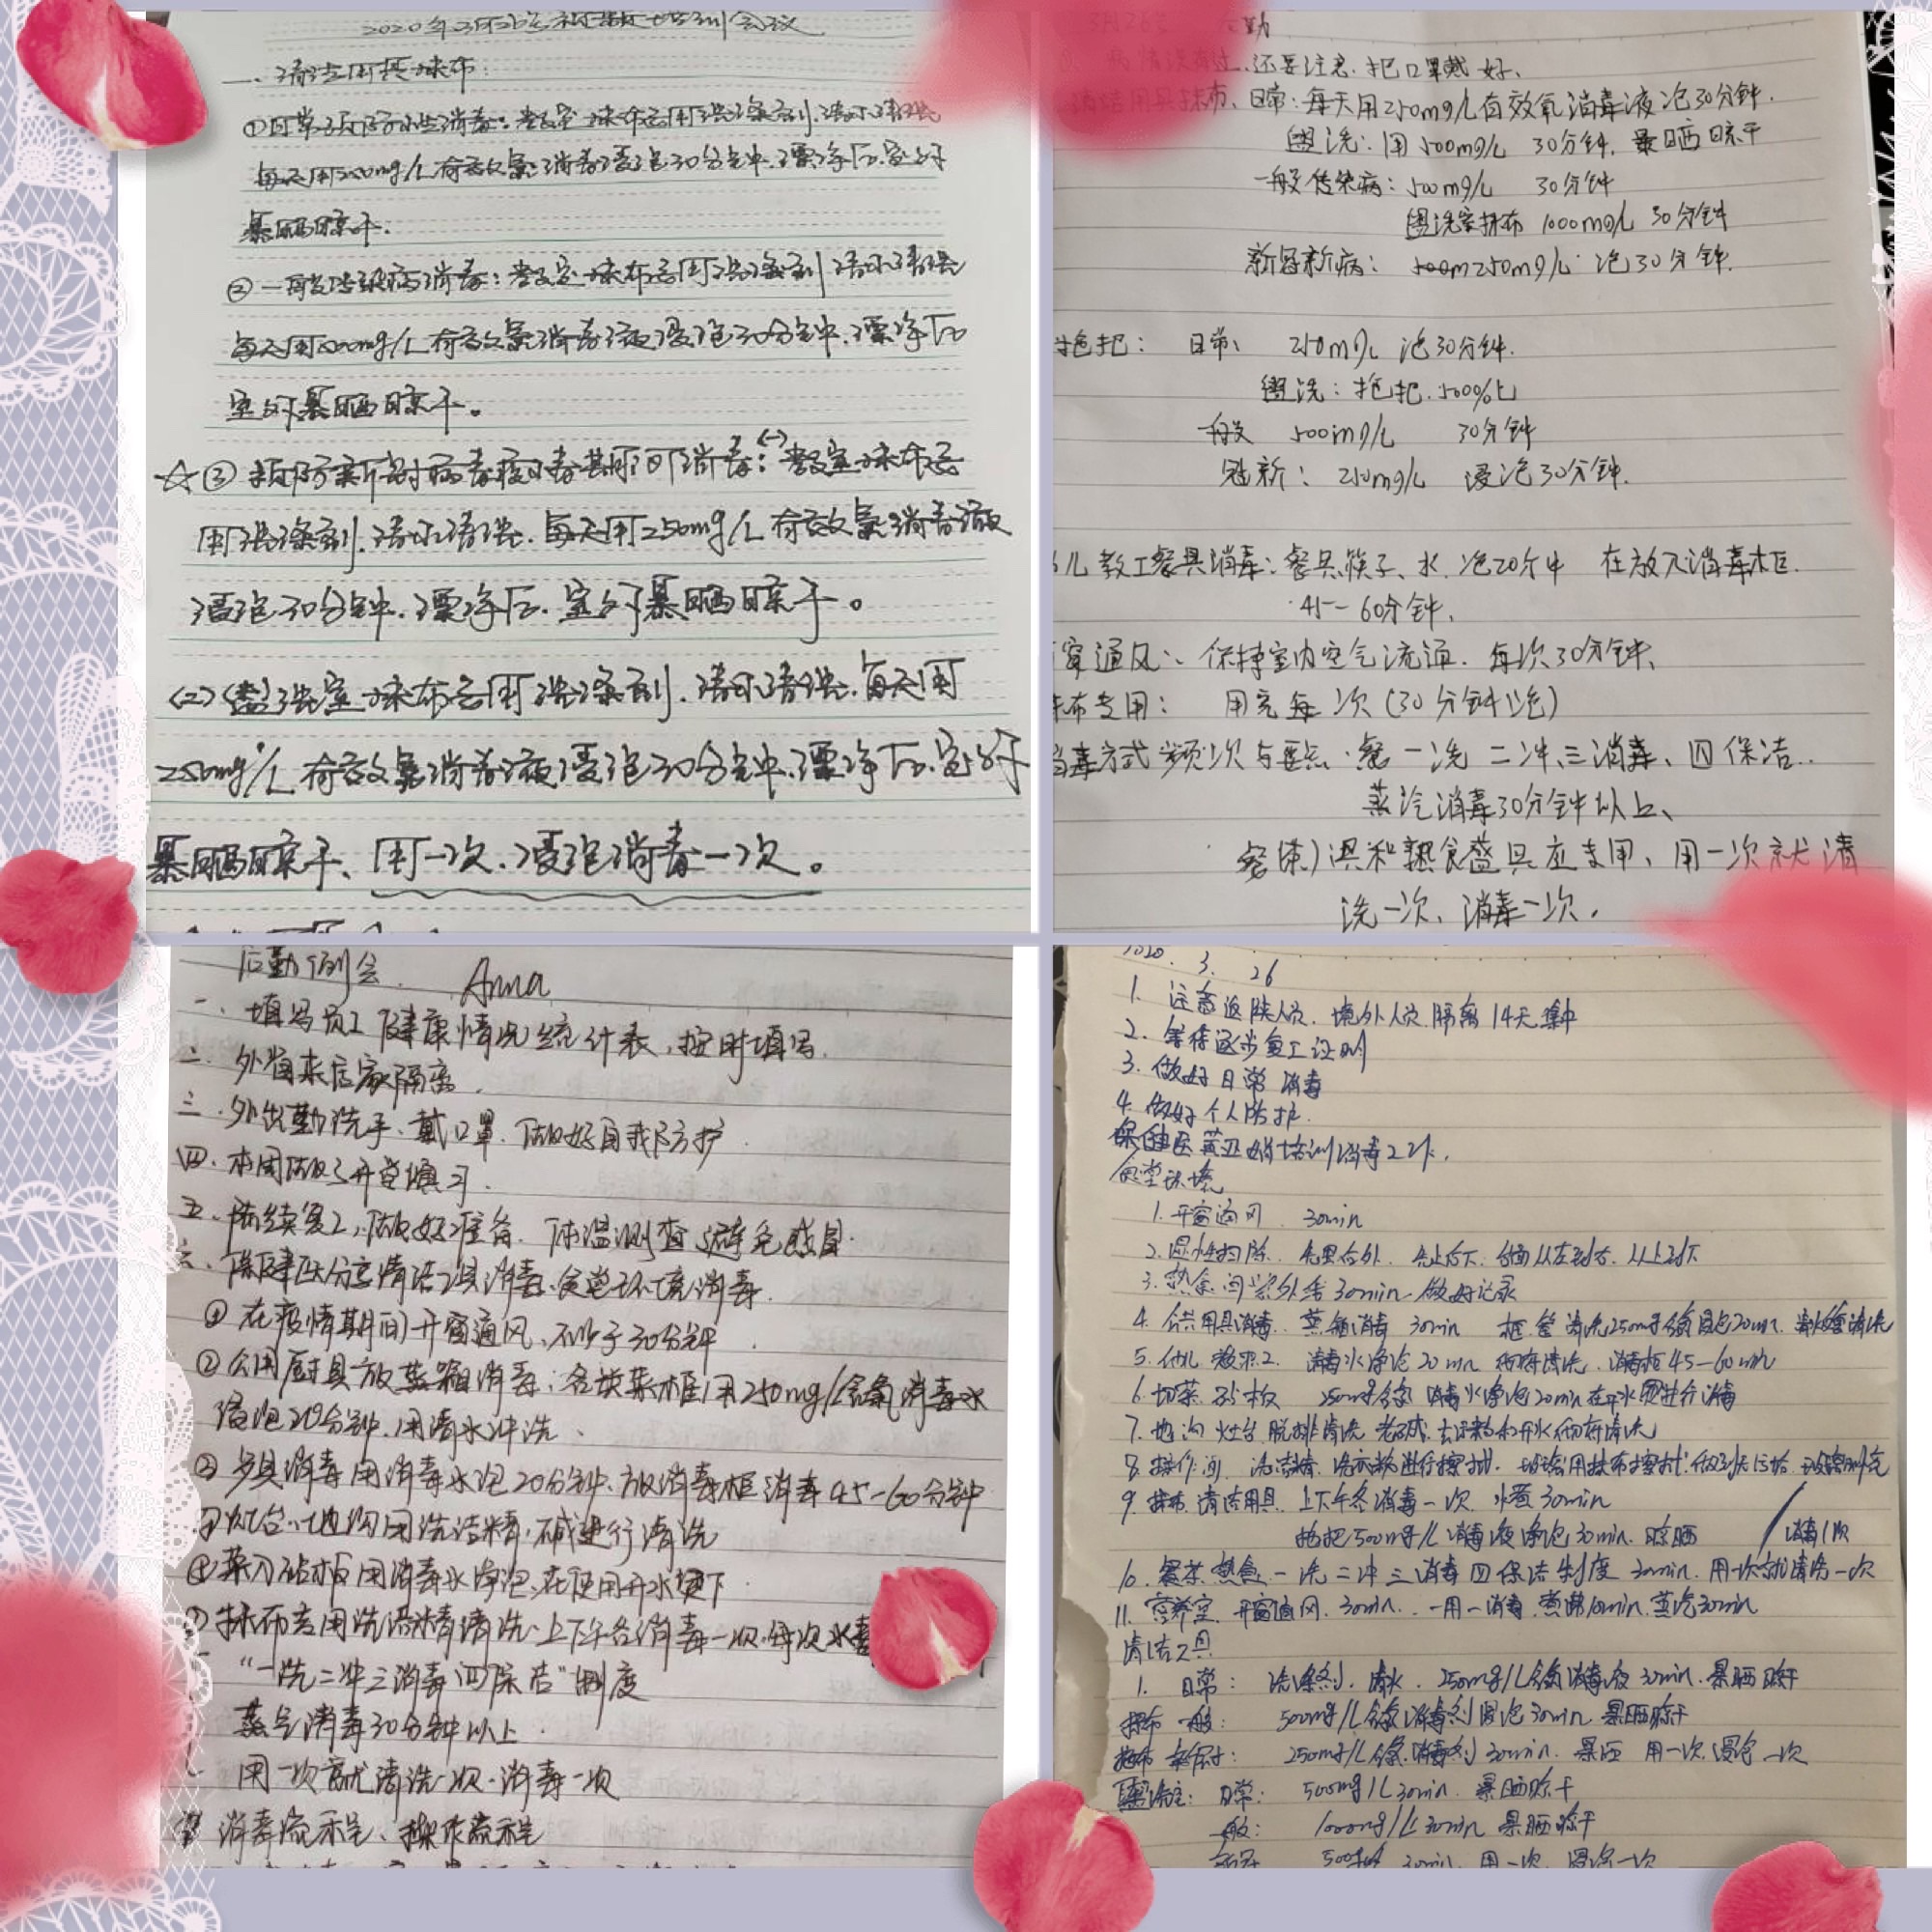 一、清洁用具抹布:
①日常预防性消毒:教室抹布先用洗涤剂、清水清洗
每天用250mg/L有效氯消毒液浸泡30分钟.漂净后.室外
暴晒晾干.
②一般传染病消毒:教室抹布先用洗涤剂清水清洗
每天用500mg/L有效氯消毒液浸泡30分钟.漂净后
室外暴晒晾干。
☆③预防新冠肺病毒疫毒期间消毒:<一>教室抹布先
用洗涤剂.清水清洗.每天用250mg/L有效氯消毒液
浸泡30分钟.漂净后.室外暴晒晾干。
<二>盥洗室抹布先用洗涤剂.清水清洗.每天用
250mg/L有效氯消毒液浸泡30分钟.漂净后.室外
暴晒晾干、用一次.浸泡消毒一次。
还要注意.把口罩戴好、
抹布、日常:每天用250mg/L有效氧消毒液泡30分钟.
盥洗:用500mg/L 30分钟.暴晒晾干
一般传染病:500mg/L 30分钟
盥洗室抹布 1000mg/L 30分钟
新冠新病: 250mg/L 泡30分钟.
拖把: 日常、 250mg/L 泡30分钟.
盥洗:拖把.500%L
一般 500mg/L 30分钟
冠新: 250mg/L 浸泡30分钟.
儿教工餐具消毒:餐具筷子、水.泡20分中 在放入消毒柜.
45-60分钟.
窗通风:保持室内空气流通.每次30分钟、
布专用: 用完每次(30分钟泡)
毒方式频次与要点.餐一洗二冲、三消毒、四保洁..
蒸汽消毒30分钟以上、
具和熟食盛具应专用、用一次就清
洗一次、消毒一次.
后勤例会. Anna
一.填写员工健康情况统计表,按时填写.
二.外省来居家隔离.
三.外出勤洗手、戴口罩.做好自我防护.
四.本周做了开学演习.
五.陆续复工,做好准备.体温测查,避免感冒.
六.保健医分享清洁工具消毒、食堂环境消毒.
①在疫情期间开窗通风、不少于30分钟.
②公用厨具放蒸箱消毒;各类菜框用250mg/L含氯消毒水
浸泡20分钟.用清水冲洗、
③餐具消毒用消毒水泡20分钟.放消毒柜消毒45-60分钟
灶台.地沟用洗洁精.碱进行清洗
④菜刀砧板用消毒水浸泡,在使用开水烫下.
抹布专用洗洁精清洗.上下午各消毒一次.每次水煮
“一洗二冲三消毒四保洁”制度
蒸气消毒30分钟以上.
用一次就清洗一次.消毒一次
消毒流程、操作流程
2020.3.26
1.注意返陕人员.境外人员.隔离14天集中
2.等待逐步复工证明
3.做好日常消毒
4.做好个人防护.
保健医 培训消毒工作.
食堂环境
1.开窗通风 30min
2.湿性扫除.先里后外.先上后下.台面从左到右.从上到下
3. 紫外线30min.做好记录
4.公共用具消毒.蒸箱消毒 30min 框 清洗250mg含氯浸泡20min.
5.幼儿教职工.消毒水浸泡20min 清洗.消毒柜45-60min
6.切菜砧板 250mg含氯消毒水浸泡20min在开水烫进行消毒
7.地沟 灶台 脱排清洗 老碱.去污粉和开水 清洗
8.操作间.洗洁精.洗衣粉进行擦拭.
9.抹布.清洁用具.上下午各消毒一次.水煮30min
拖把500mg/L消毒液浸泡30min.晾晒 消毒1次
10.餐茶熟食一洗二冲三消毒四保洁制度 30min.用一次就清洗一次
11.营养室.开窗通风.30min..一用一消毒.煮沸10min.蒸汽30min
清洁工具
1.日常:洗涤剂.清水.250mg/L含氯消毒液30min.暴晒晾干
抹布一般: 500mg/L含氯消毒剂浸泡30min.暴晒晾干
250mg/L含氯消毒剂30min.暴晒 用一次.浸泡一次
日常: 500mg/L30min.暴晒晾干
一般: 1000mg/L30min 暴晒晾干
30min.用一次.浸泡一次